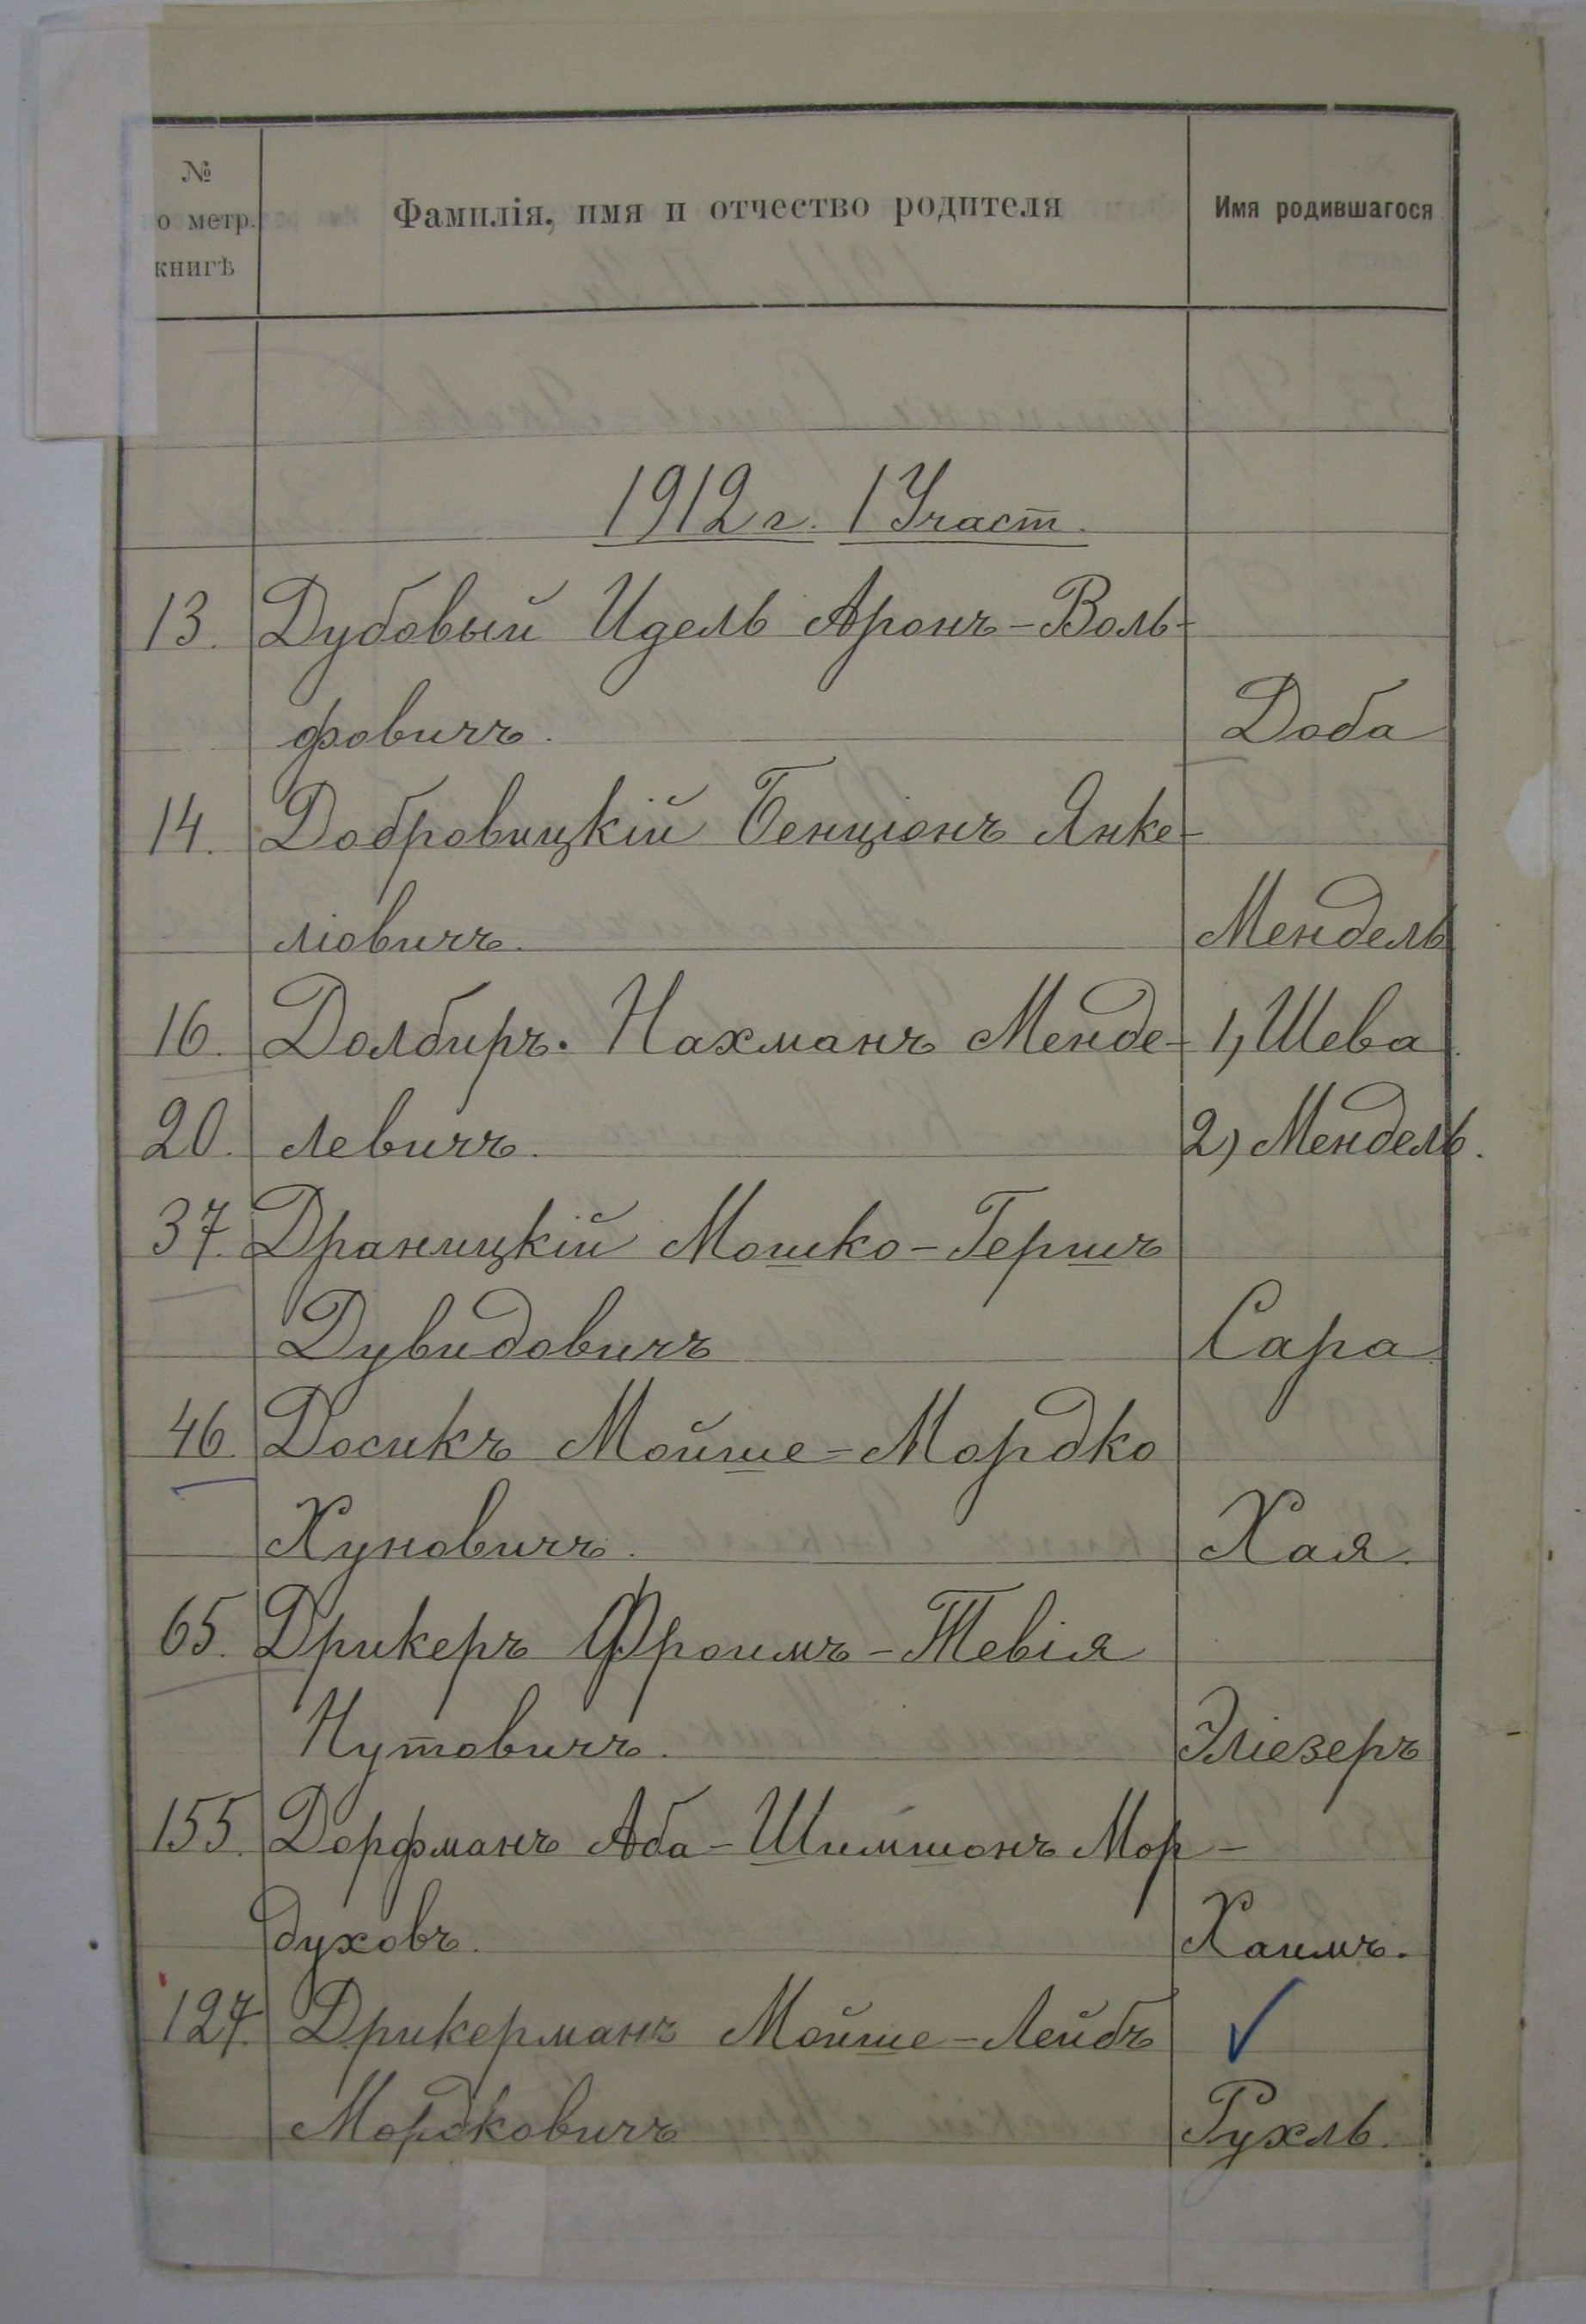 №
о метр.
книгѣ
Фамилія, имя и отчество родителя
Имя родившагося
1912 г. 1 Участ.
13. Дубовый Идель Аронъ-Воль-
фовичъ. Доба
14. Добровицкій Бенціонъ Янке-
ліовичъ. Мендель
16. Долбиръ. Нахманъ Менде- 1) Шева
20. левичъ. 2) Мендель.
37. Драницкій Мошко-Гершъ
Дувидовичъ Сара
46. Досикъ Мойше-Мордко
Хуновичъ. Хая.
65. Дрикеръ Фроимъ-Тевія
Нутовичъ. Эліезеръ
155. Дорфманъ Аба-Шимшонъ Мор-
духовъ. Хаимъ.
127. Дрикерманъ Мойше-Лейбъ
Мордковичъ Рухль.